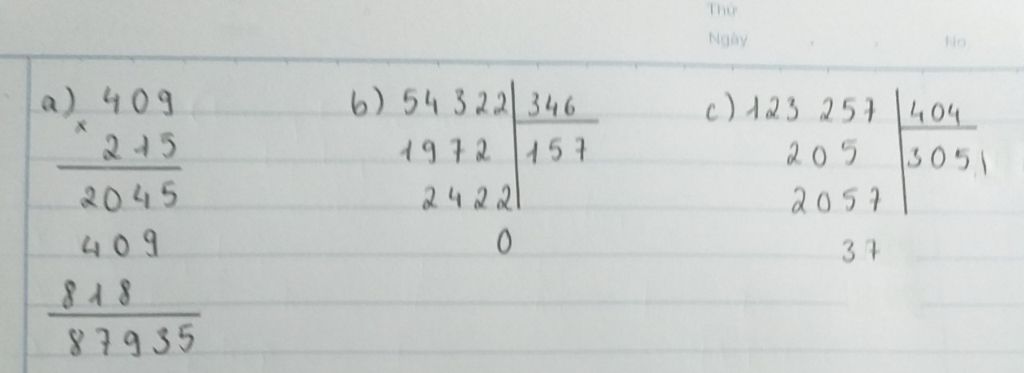 Thứ
Ngày
No
a) 409
×
215
2045
409
818
87935
b) 54322 346
1972 157
2422
0
c) 123 257 404
205 305
2057
37